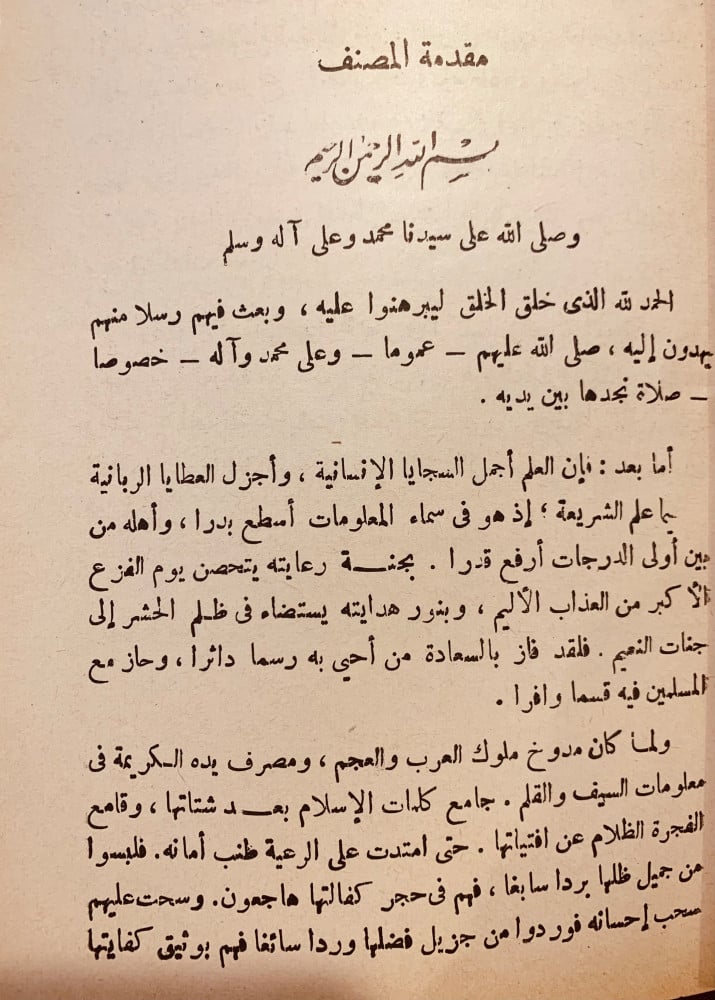 مقدمة المصنف
بسم الله الرحمن الرحيم
وصلى الله على سيدنا محمد وعلى آله وسلم
الحمد لله الذى خلق الخلق ليبرهنوا عليه ، وبعث فيهم رسلا منهم
يهدون إليه ، صلى الله عليهم – عموما – وعلى محمد وآله – خصوصا
– صلاة نجدها بين يديه .
أما بعد : فإن العلم أجمل السجايا الإنسانية ، وأجزل العطايا الربانية
علم الشريعة ؛ إذ هو فى سماء المعلومات أسطع بدرا ، وأهله من
بين أولى الدرجات أرفع قدرا . بجنــة رعايته يتحصن يوم الفزع
الأكبر من العذاب الأليم ، وبنور هدايته يستضاء فى ظلم الحشر إلى
جنات النعيم . فلقد فاز بالسعادة من أحيى به رسما داثرا ، وحاز مع
المسلمين فيه قسما وافرا .
ولما كان مدوخ ملوك العرب والعجم ، ومصرف يده الكريمة فى
معلومات السيف والقلم . جامع كلمات الإسلام بعــد شتاتها ، وقامع
الفجرة الظلام عن افتياتها . حتى امتدت على الرعية طنب أمانه . فلبسوا
من جميل ظلها بردا سابغا ، فهم فى حجر كفالتها هاجعون . وسحت عليهم
سحب إحسانه فوردوا من جزيل فضلها وردا سائغا فهم بوثيق كفايتها